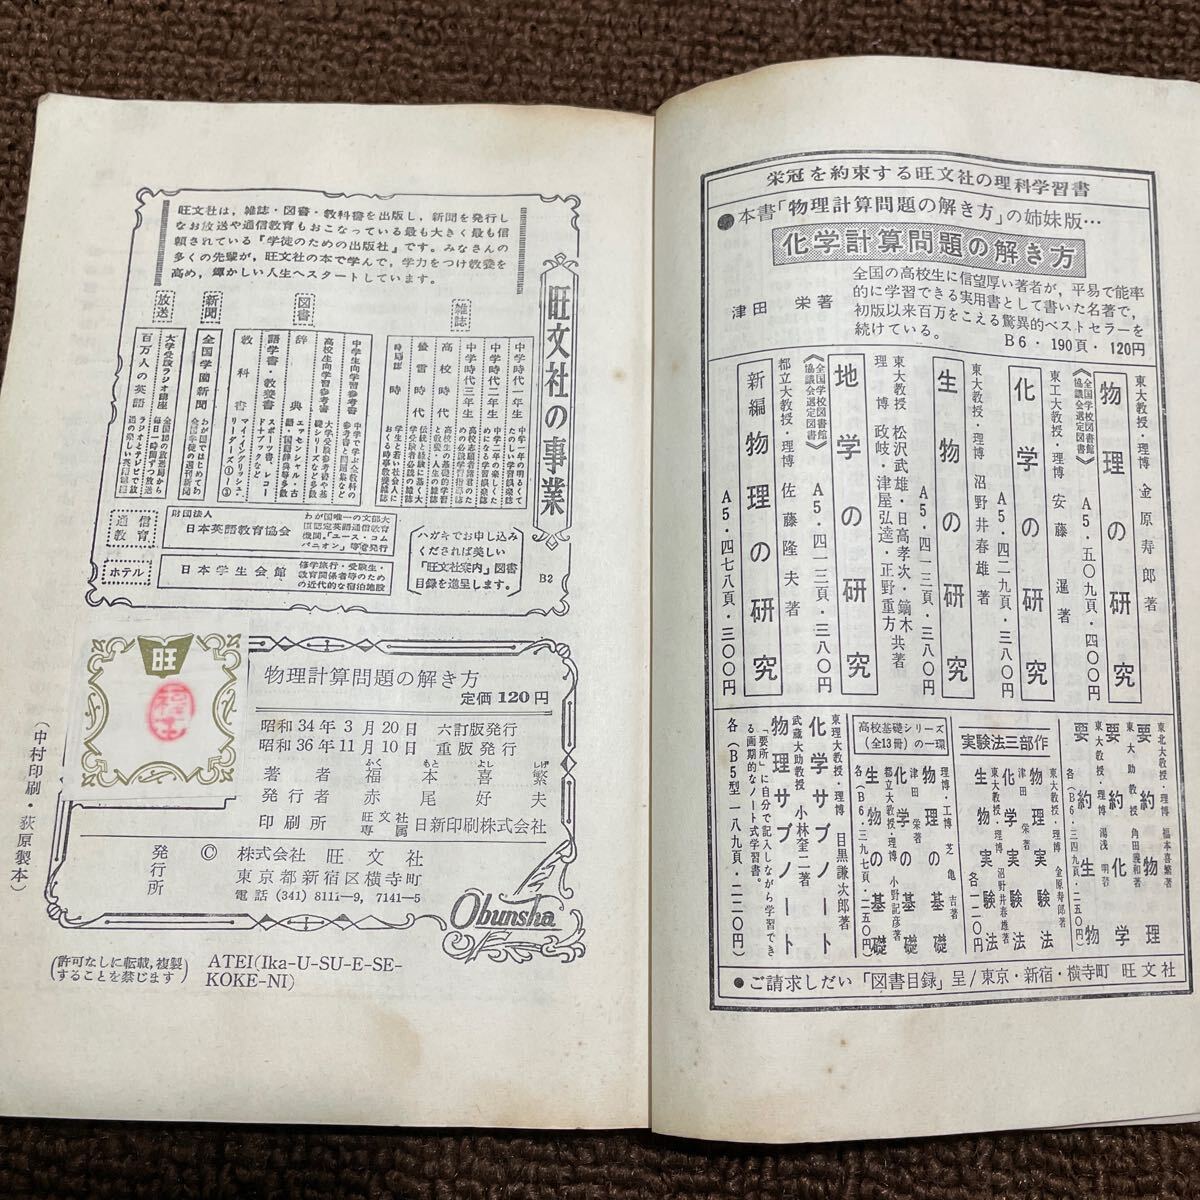 旺文社は，雑誌・図書・教科書を出版し，新聞を発行し
なお放送や通信教育もおこなっている最も大きく最も信
頼されている『学徒のための出版社』です。みなさんの
多くの先輩が，旺文社の本で学んで，学力をつけ教養を
高め，輝かしい人生へスタートしています。
旺文社の事業
雑誌
中学時代一年生
中学時代二年生
中学時代三年生
高校時代
螢雪時代
時局誌 時
図書
中学生向学習参考書
高校生向学習参考書
辞典
語学書・教養書
教科書
新聞
全国学園新聞
放送
大学受験ラジオ講座
百万人の英語
通信教育
財団法人
日本英語教育協会
わが国唯一の文部大
臣認定英語通信教育
機関。「ユース・コム
パニオン」等を発行
ホテル
日本学生会館
修学旅行・受験生・
教育関係者等のため
の近代的な宿泊施設
ハガキでお申し込み
くだされば美しい
「旺文社案内」図書
目録を進呈します。
B2
旺
物理計算問題の解き方
定価 120円
昭和34年3月20日 六訂版発行
昭和36年11月10日 重版発行
著者 福本喜繁
ふく もと よし しげ
発行者 赤尾好夫
印刷所 旺文社専属 日新印刷株式会社
発行所
© 株式会社 旺文社
東京都新宿区横寺町
電話 (341) 8111—9, 7141—5
Obunsha
(許可なしに転載,複製
することを禁じます)
ATEI(Ika-U-SU-E-SE-
KOKE-NI)
(中村印刷・荻原製本)
栄冠を約束する旺文社の理科学習書
●本書「物理計算問題の解き方」の姉妹版…
化学計算問題の解き方
津田 栄著
全国の高校生に信望厚い著者が，平易で能率
的に学習できる実用書として書いた名著で，
初版以来百万をこえる驚異的ベストセラーを
続けている。
B6・190頁・120円
東大教授・理博 金原寿郎著
物理の研究
《全国学校図書館協議会選定図書》
A5・五〇九頁・四〇〇円
東工大教授・理博 安藤 暹著
化学の研究
A5・四二九頁・三八〇円
東大教授・理博 沼野井春雄著
生物の研究
A5・四一三頁・三八〇円
東大教授 松沢武雄・日高孝次・鏑木
理博 政岐・津屋弘逵・正野重方共著
地学の研究
《全国学校図書館協議会選定図書》
A5・四一三頁・三八〇円
都立大教授・理博 佐藤隆夫著
新編物理の研究
A5・四七八頁・三〇〇円
東北大教授・理博 福本喜繁著
要約物理
東大助教授 角田
要約化学
東大教授・理博 湯浅 明著
要約生物
各(B6・三四九頁・二五〇円)
実験法三部作
東大教授・理博 金原寿郎著
物理実験法
津田 栄著
化学実験法
東大教授・理博 沼野井春雄著
生物実験法
各二一〇円
高校基礎シリーズ
(全13冊)の一環
理博・工博 芝 亀吉著
物理の基礎
津田 栄著
化学の基礎
都立大教授・理博 小野記彦著
生物の基礎
各(B6・三五九頁・二五〇円)
東理大教授・理博 目黒謙次郎著
化学サブノート
武蔵大助教授 小林奎二著
物理サブノート
「要所」に自分で記入しながら学習でき
る画期的なノート式学習書。
各(B5型一八九頁・二二〇円)
●ご請求しだい「図書目録」呈/東京・新宿・横寺町 旺文社